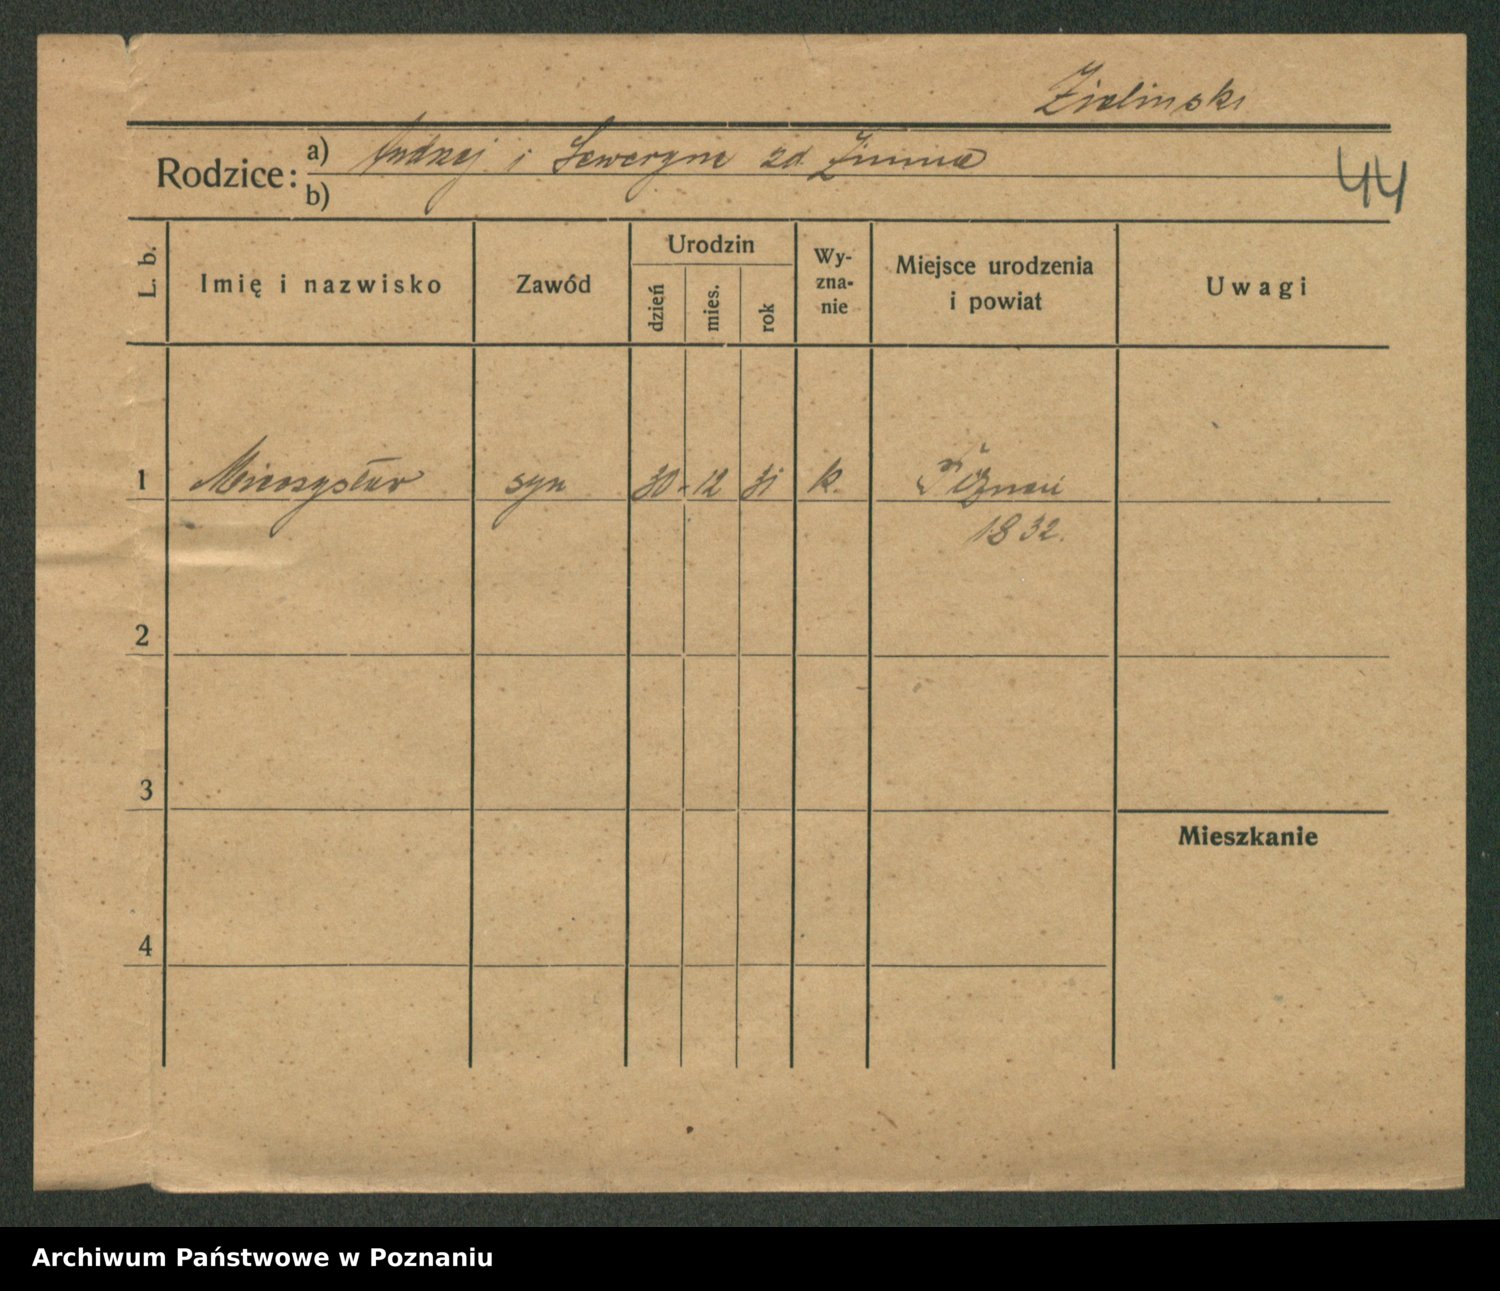 Zielinski
Rodzice: a) Andrzej i Seweryna zd. Zimna
44
b)
L. b.
Imię i nazwisko
Zawód
Urodzin
dzień
mies.
rok
Wy-
zna-
nie
Miejsce urodzenia
i powiat
Uwagi
1 Mieczysław syn 30 - 12 31 k. Poznań
1832.
2
3
Mieszkanie
4
Archiwum Państwowe w Poznaniu